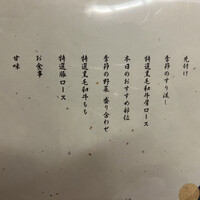 先付け
季節のすり流し
特選黒毛和牛肩ロース
本日のおすすめ部位
季節の野菜 盛り合わせ
特選黒毛和牛もも
特選豚ロース
お食事
甘味